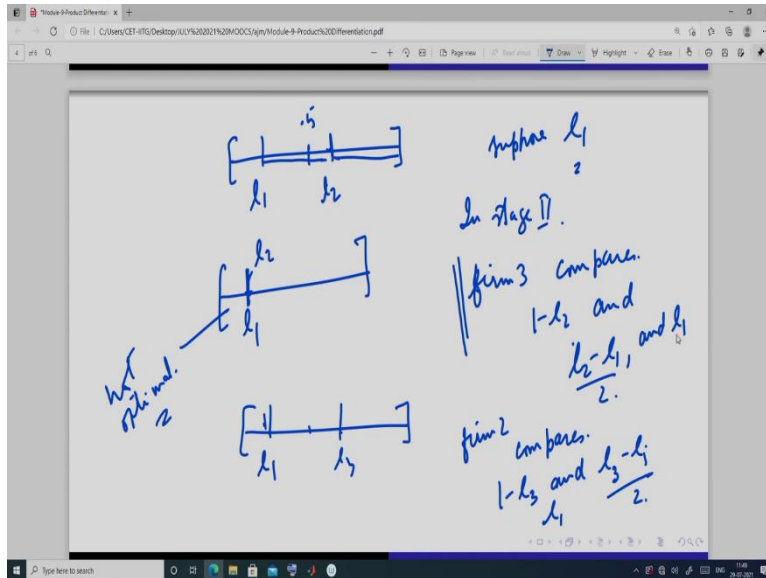 *Module-9-Product Differentiat
File | C:/Users/CET-IITG/Desktop/JULY%202021%20MOOCS/ajm/Module-9-Product%20Differentiation.pdf
4 of 6
Page view | Read aloud | Draw Highlight Erase
.5
l1 l2
suppose l1
In stage II.
l2
l1
firm 3 compares.
1-l2 and
l2-l1, and l1
2.
Not
optimal.
l1 l3
firm 2
compares.
1-l3 and l3-l1
2.
l1
Type here to search
ENG
11:48
29-07-2021